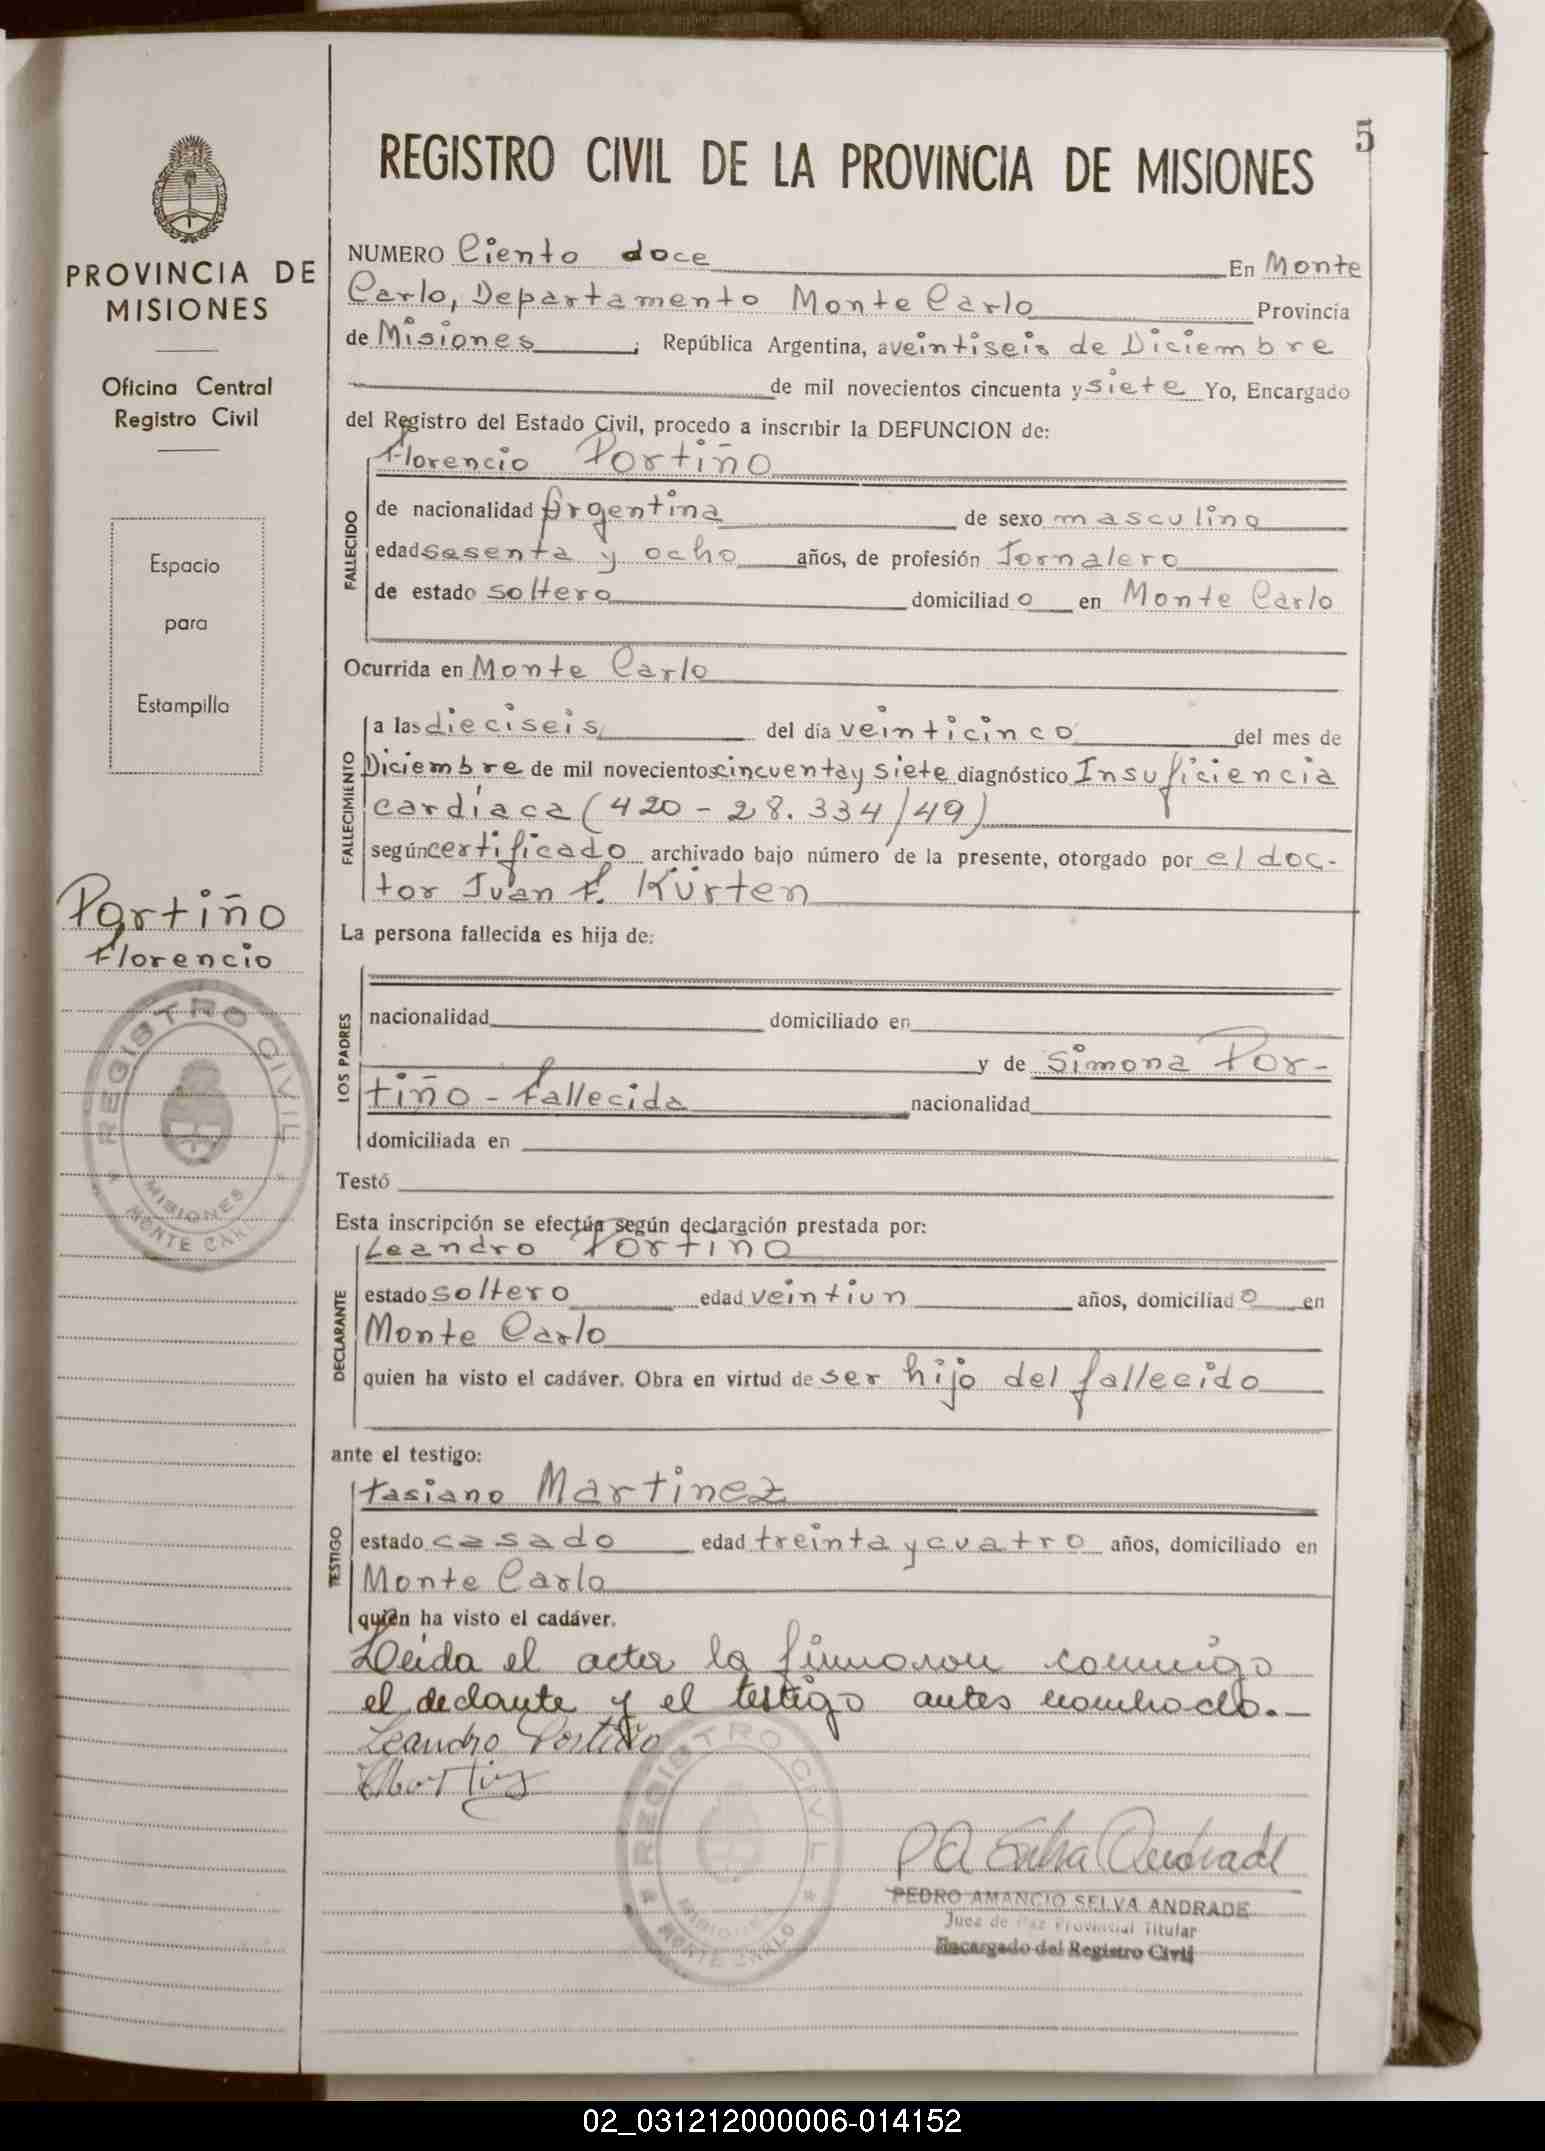 5
REGISTRO CIVIL DE LA PROVINCIA DE MISIONES
PROVINCIA DE
MISIONES
Oficina Central
Registro Civil
Espacio
para
Estampilla
Portiño
Florencio
REGISTRO CIVIL
MISIONES
MONTE CARLO
NUMERO Ciento doce En Monte
Carlo, Departamento Monte Carlo Provincia
de Misiones ; República Argentina, a veintiseis de Diciembre
de mil novecientos cincuenta y siete Yo, Encargado
del Registro del Estado Civil, procedo a inscribir la DEFUNCION de:
Florencio Portiño
FALLECIDO
de nacionalidad Argentina de sexo masculino
edad sesenta y ocho años, de profesión Jornalero
de estado soltero domiciliado en Monte Carlo
Ocurrida en Monte Carlo
FALLECIMIENTO
a las dieciseis del día veinticinco del mes de
Diciembre de mil novecientos cincuenta y siete diagnóstico Insuficiencia
cardíaca (420 - 28.334/49)
según certificado archivado bajo número de la presente, otorgado por el doc-
tor Juan F. Kürten
La persona fallecida es hija de:
LOS PADRES
nacionalidad domiciliado en
y de Simona Por-
tiño - fallecida nacionalidad
domiciliada en
Testó
Esta inscripción se efectúa según declaración prestada por:
Leandro Portiño
DECLARANTE
estado soltero edad veintiun años, domiciliado en
Monte Carlo
quien ha visto el cadáver. Obra en virtud de ser hijo del fallecido
ante el testigo:
Tasiano Martinez
TESTIGO
estado casado edad treinta y cuatro años, domiciliado en
Monte Carlo
quien ha visto el cadáver.
Leída el acta la firmaron conmigo
el declante y el testigo antes nombrado.-
Leandro Portiño
REGISTRO CIVIL
MISIONES
MONTE CARLO
P A Selva Andrade
PEDRO AMANCIO SELVA ANDRADE
Juez de Paz Provincial Titular
Encargado del Registro Civil
02_031212000006-014152